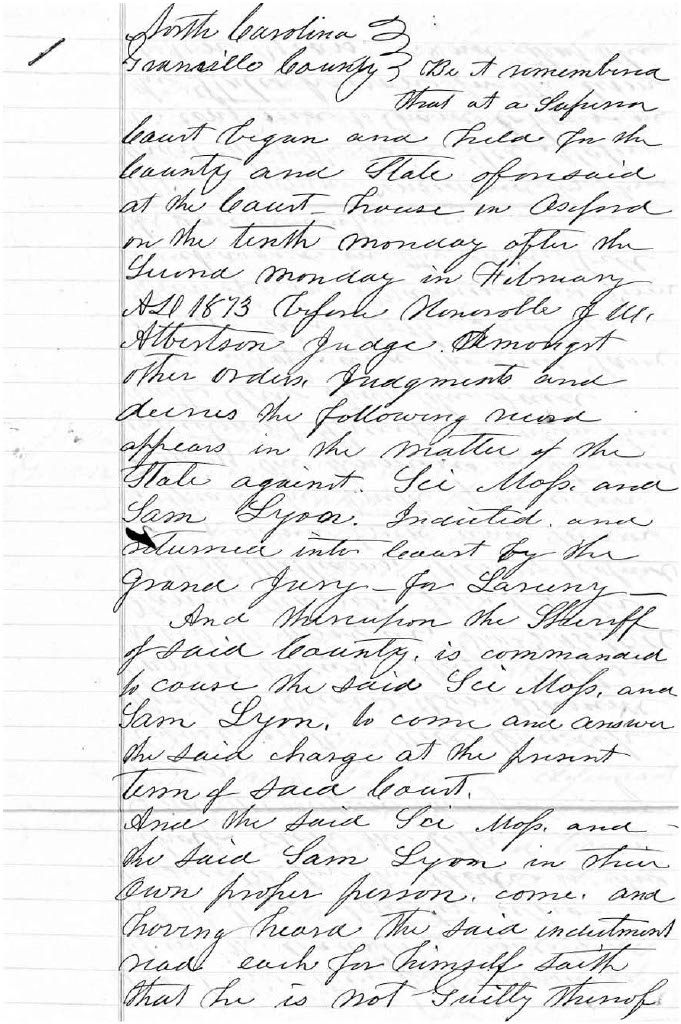 North Carolina }
Granville County } Be it remembered
that at a Superior
Court began and held for the
County and State aforesaid
at the Court-house in Oxford
on the tenth monday after the
Second monday in February
AD 1873 before Honorable J W.
Albertson Judge. Amongst
other orders, Judgments and
decrees the following record
appears in the matter of the
State against. Sci Moss. and
Sam Lyon. Indicted. and
returned into Court by the
Grand Jury - for Larceny -
And thereupon the Sheriff
of said County, is commanded
to cause the said Sci Moss, and
Sam Lyon, to come and answer
the said charge at the present
term of said Court.
And the said Sci Moss. and -
the said Sam Lyon in their
Own proper person. come. and
having heard the said indictment
read each for himself saith
that he is not Guilty thereof